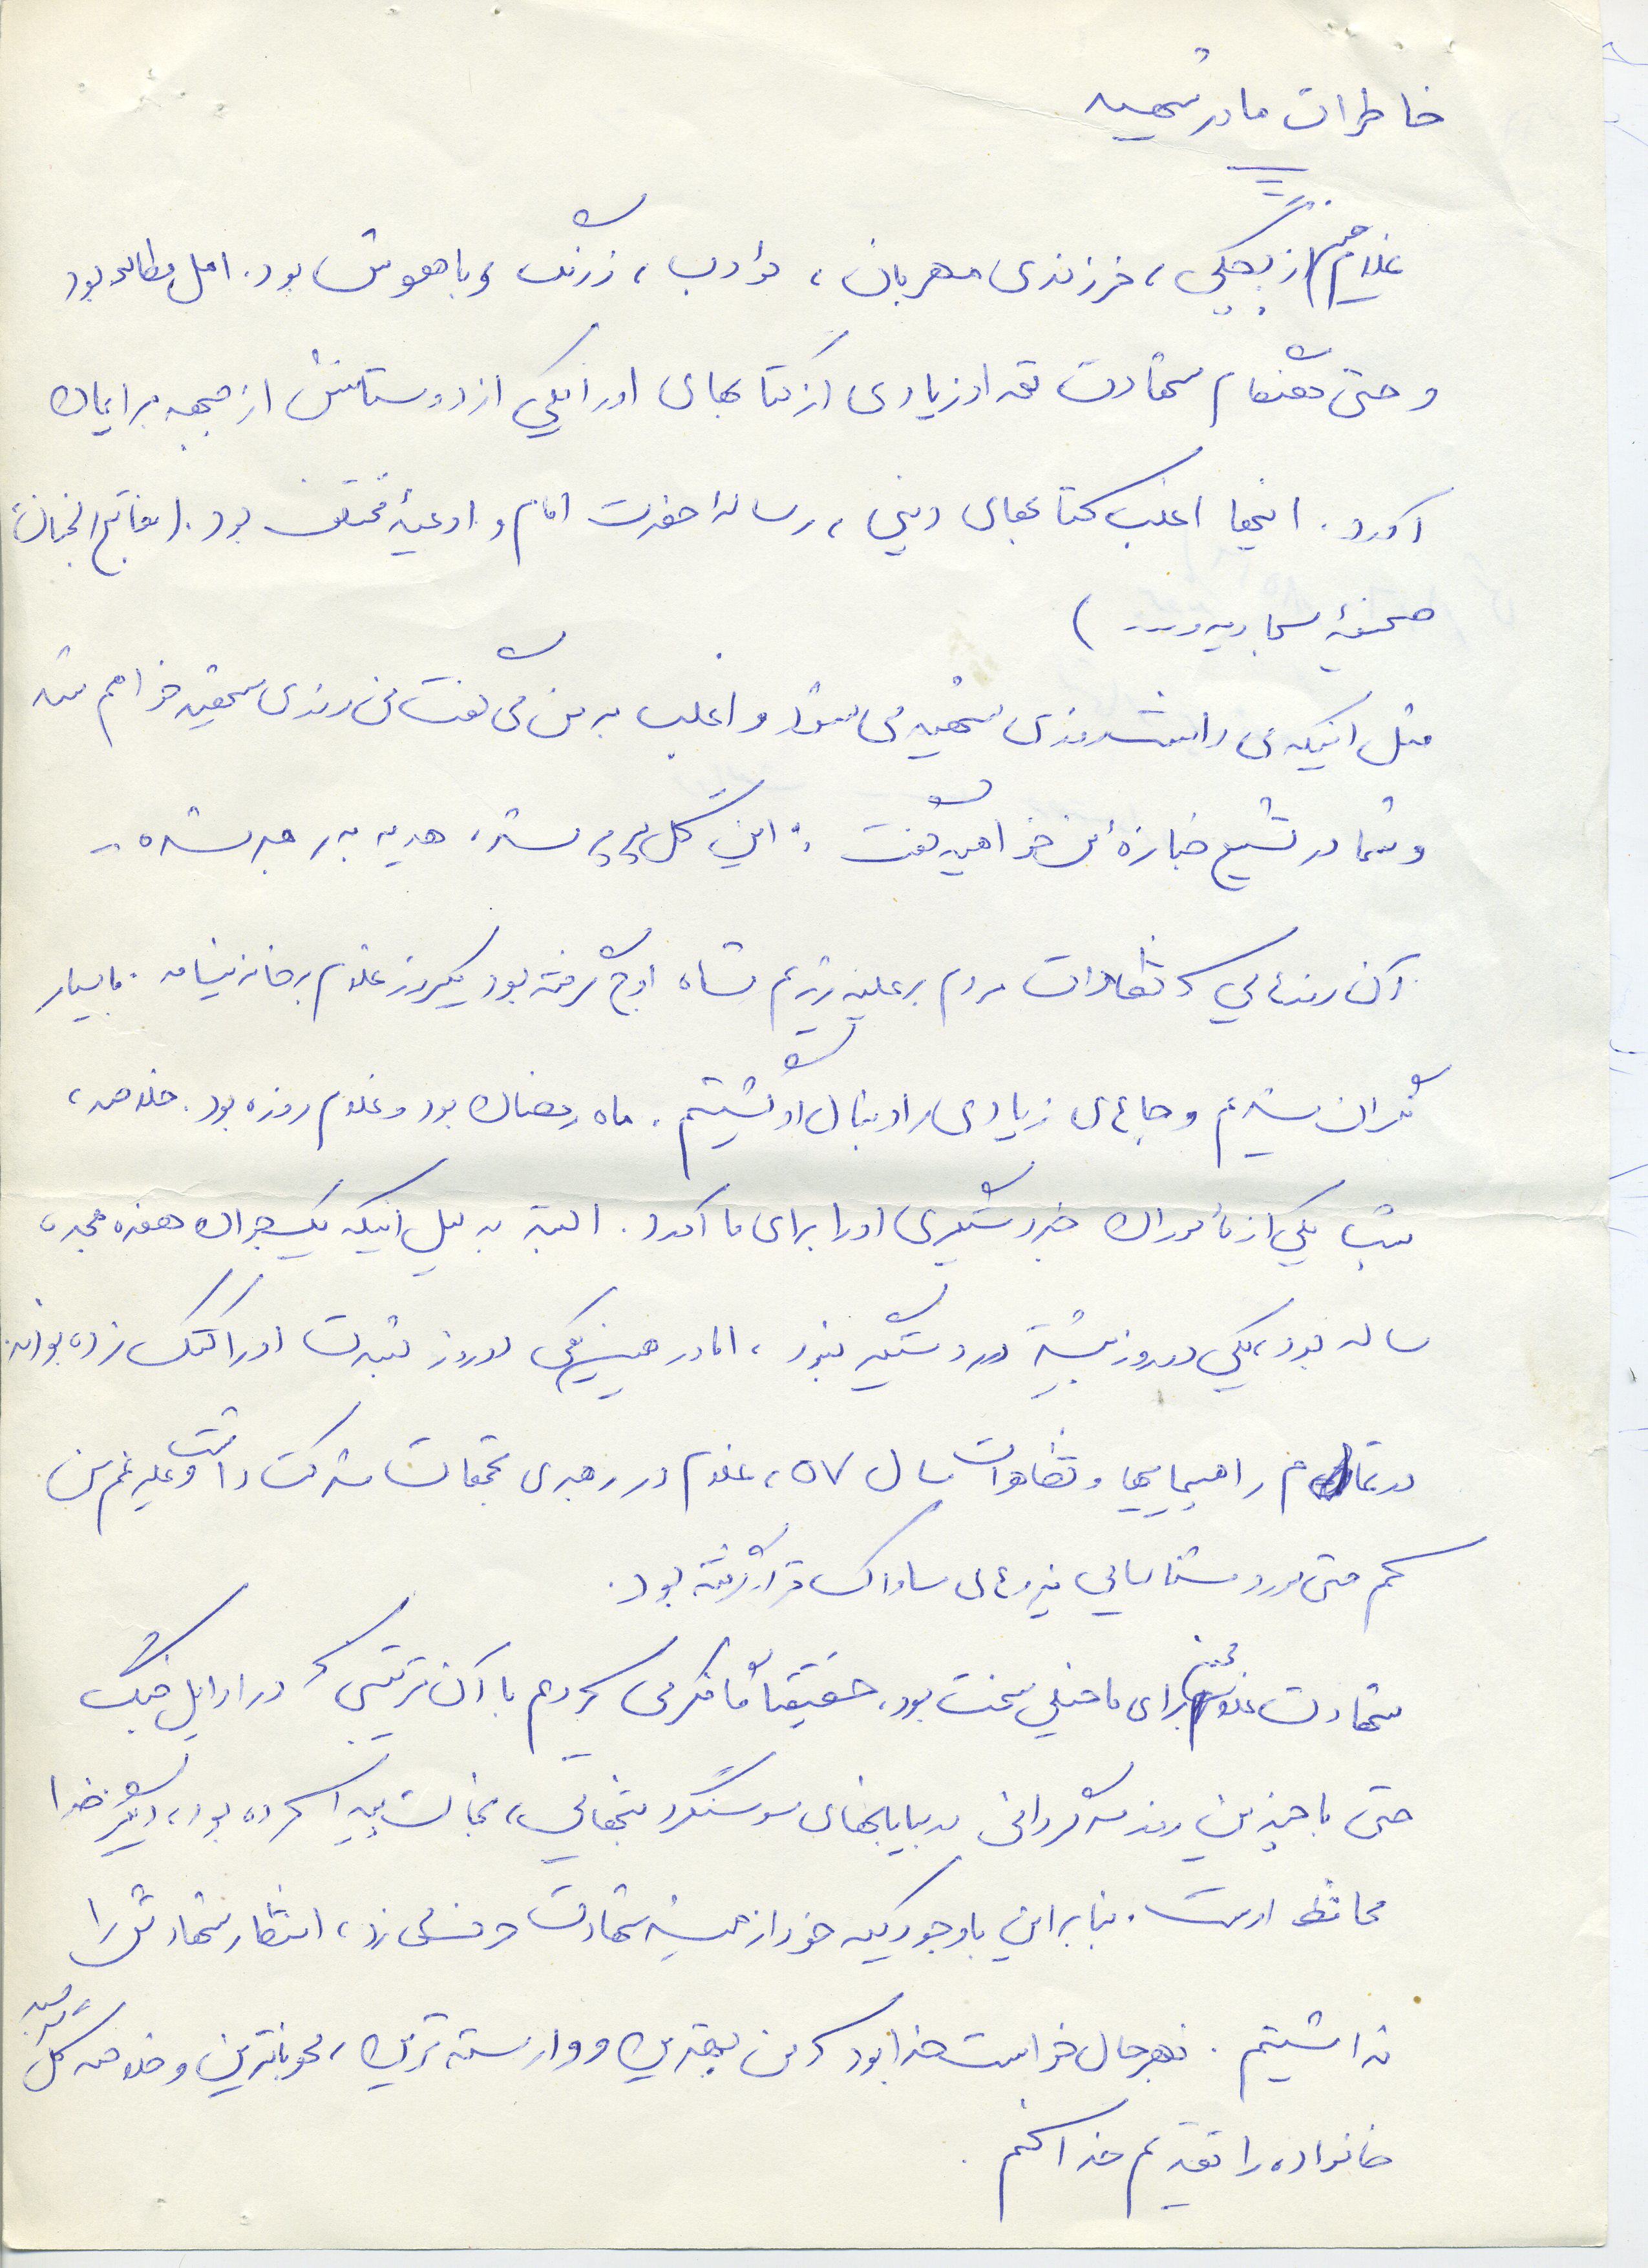 خاطرات مادر شهید
غلام از بچگی، فرزندی مهربان، مؤدب، زرنگ و باهوش بود. اهل مطالعه بود
و حتی هنگام شهادت تعداد زیادی از کتابهای او را یکی از دوستانش از جبهه برایمان
آورد. اینها اغلب کتابهای دینی، رسالهٔ حضرت امام و ادعیهٔ مختلف بود. (مفاتیح الجنان،
صحیفهٔ سجادیه و...)
مثل اینکه می دانست روزی شهید می شود و اغلب به من می گفت من روزی شهید خواهم شد
و شما در تشییع جنازهٔ من خواهید گفت: این گل پرپر شده، هدیه به رهبر شده..
آن روزهایی که تظاهرات مردم بر علیه رژیم شاه اوج گرفته بود یکروز غلام به خانه نیامد. ما بسیار
نگران شدیم و جاهای زیادی را دنبال او گشتیم. ماه رمضان بود و غلام روزه بود. خلاصه،
شب یکی از مأموران خبر دستگیری او را برای ما آورد. البته به دلیل اینکه یک جوان هفده هجده
ساله بود، یکی دو روز بیشتر در دستگیر نبود، اما در همین یکی دو روز بشدت او را کتک زده بودند.
در تمام راهپیماییها و تظاهرات سال ۵۷، غلام در رهبری تجمعات شرکت داشت و علیرغم سن
کم حتی مورد شناسایی نیروهای ساواک قرار گرفته بود.
شهادت غلام برای ما خیلی سخت بود. حقیقتاً ما فکر می کردیم با آن ترتیبی که در اوایل جنگ
حتی با چندین روز سرگردانی در بیابانهای سوسنگرد بتنهایی، نجات پیدا کرده بود، دیگر خدا
محافظ اوست. بنابراین با وجودیکه خود از همیشه شهادت حرف می زد، انتظار شهادتش را
نداشتیم. بهرحال خواست خدا بود که من بهترین و وارسته ترین، محبوبترین و خلاصه گل
خانواده را تقدیم خدا کنم.